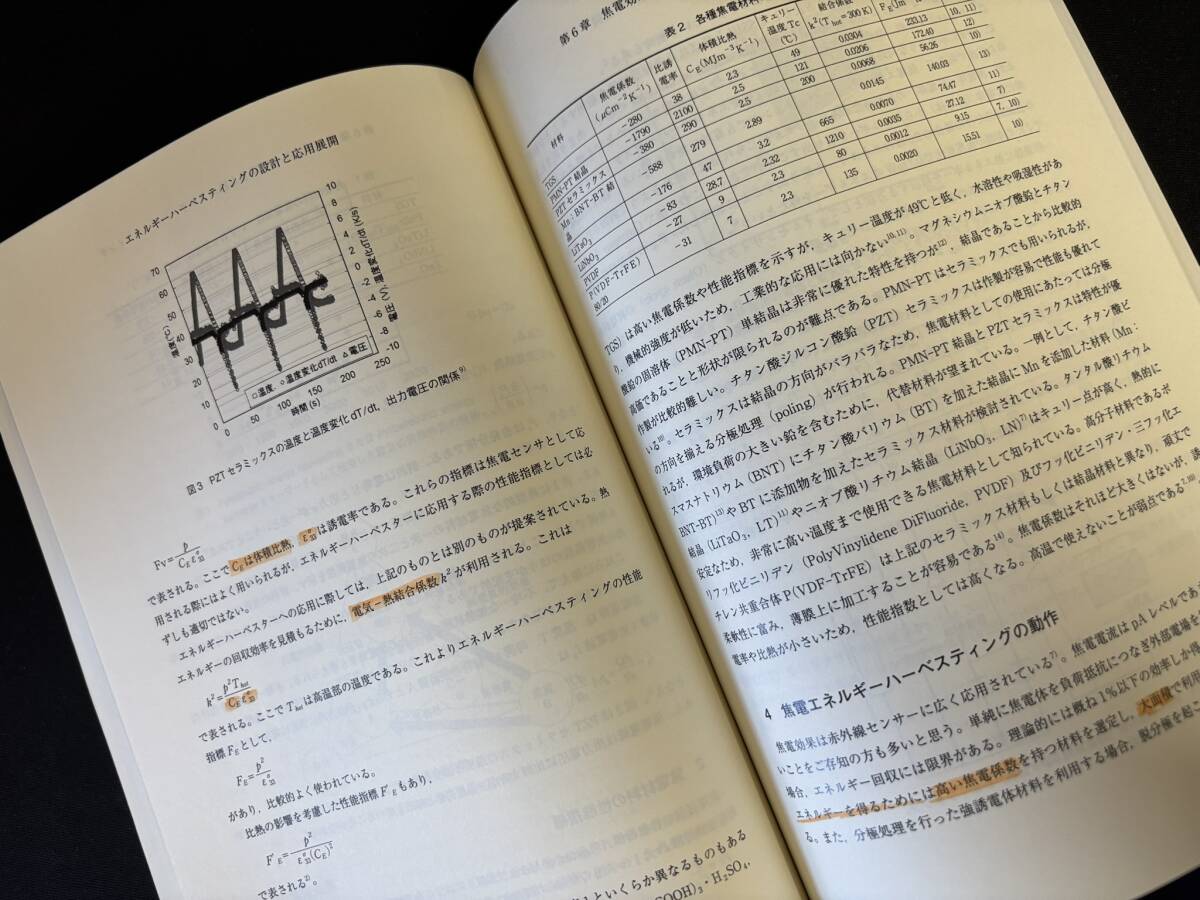 エネルギーハーベスティングの設計と応用展開
70
60
50
40
30
20
10
0
温度(℃)
10
8
6
4
2
0
-2
-4
-6
-8
-10
電圧(V), 温度変化dT/dt (K/s)
□温度 ○温度変化dT/dt △電圧
0 50 100 150 200 250
時間(s)
図3 PZTセラミックスの温度と温度変化 dT/dt, 出力電圧の関係9)
Fv=p/CEεσ33
で表される。ここで CEは体積比熱, εσ33は誘電率である。これらの指標は焦電センサとして応
用される際にはよく用いられるが, エネルギーハーベスターに応用する際の性能指標としては必
ずしも適切ではない。
エネルギーハーベスターへの応用に際しては, 上記のものとは別のものが提案されている。熱
エネルギーの回収効率を見積もるために, 電気−熱結合係数k2が利用される。これは
k2=p2Thot/CEεσ33
で表される。ここで Thotは高温部の温度である。これよりエネルギーハーベスティングの性能
指標FEとして,
FE=p2/εσ33
があり, 比較的よく使われている。
比熱の影響を考慮した性能指標F′Eもあり,
F′E=p2/εσ33(CE)2
で表される2)。
といくらか異なるものもある
COOH)3・H2SO4,
第6章 焦電効
表2 各種焦電材料
材料 焦電係数(μCm−2K−1) 比誘電率 体積比熱CE(MJm−3K−1) キュリー温度Tc(℃) 結合係数k2(Thot=300K) FE(Jm
TGS −280 38 2.3 49 0.0304 233.13 10, 11)
PMN-PT結晶 −1790 2100 2.5 121 0.0206 172.40 12)
PZTセラミックス −380 290 2.5 200 0.0068 56.26 10)
Mn：BNT-BT結晶 −588 279 2.89 0.0145 140.03 13)
LiTaO3 −176 47 3.2 665 0.0070 74.47 11)
LiNbO3 −83 28.7 2.32 1210 0.0035 27.12 7)
PVDF −27 9 2.3 80 0.0012 9.15 7, 10)
P(VDF-TrFE) 80/20 −31 7 2.3 135 0.0020 15.51 10)
TGS）は高い焦電係数や性能指標を示すが, キュリー温度が49℃と低く, 水溶性や吸湿性があ
り, 機械的強度が低いため, 工業的な応用には向かない10,11)。マグネシウムニオブ酸鉛とチタン
酸鉛の固溶体（PMN-PT）単結晶は非常に優れた特性を持つが12), 結晶であることから比較的
高価であることと形状が限られるのが難点である。PMN-PTはセラミックスでも用いられるが,
作製が比較的難しい。チタン酸ジルコン酸鉛（PZT）セラミックスは作製が容易で性能も優れて
いる10)。セラミックスは結晶の方向がバラバラなため, 焦電材料としての使用にあたっては分極
の方向を揃える分極処理（poling）が行われる。PMN-PT結晶とPZTセラミックスは特性が優
れるが, 環境負荷の大きい鉛を含むために, 代替材料が望まれている。一例として, チタン酸ビ
スマスナトリウム（BNT）にチタン酸バリウム（BT）を加えた結晶にMnを添加した材料（Mn：
BNT-BT）13)やBTに添加物を加えたセラミックス材料が検討されている。タンタル酸リチウム
結晶（LiTaO3, LT）11)やニオブ酸リチウム結晶（LiNbO3, LN）7)はキュリー点が高く, 熱的に
安定なため, 非常に高い温度まで使用できる焦電材料として知られている。高分子材料であるポ
リフッ化ビニリデン（PolyVinylidene DiFluoride, PVDF）及びフッ化ビニリデン-三フッ化エ
チレン共重合体P(VDF-TrFE）は上記のセラミックス材料もしくは結晶材料と異なり, 頑丈で
柔軟性に富み, 薄膜上に加工することが容易である14)。焦電係数はそれほど大きくはないが, 誘
電率や比熱が小さいため, 性能指数としては高くなる。高温で使えないことが弱点である7,10)。
4 焦電エネルギーハーベスティングの動作
焦電効果は赤外線センサーに広く応用されている7)。焦電電流はpAレベルであ
いことをご存知の方も多いと思う。単純に焦電体を負荷抵抗につなぎ外部電場を
場合, エネルギー回収には限界がある。理論的には概ね1％以下の効率しか得
エネルギーを得るためには高い焦電係数を持つ材料を選定し, 大面積で利用
る。また, 分極処理を行った強誘電体材料を利用する場合, 脱分極を起こ